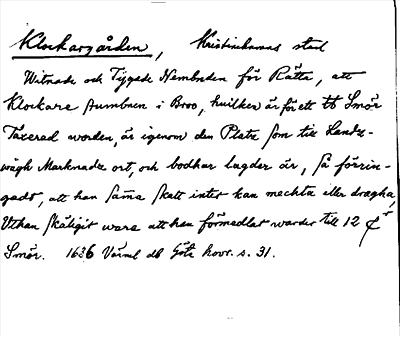 Klockargården, Kristinehamns stad
Witnade och Tygade Nembnden för Rätta, att
Klockare Aumbuen i Broo, huilken är för ett tb Smör
Taxered worden, är igenom den Platz som till Landz-
wägh Marknadz ort, och bodhar lagder är, så förrin-
gadt, att han sama skatt intet kan mechta eller dragha,
Uthan skäligit ware att han förmedlat warder till 12
Smör. 1636 Värml db Göta hovr. s. 31.